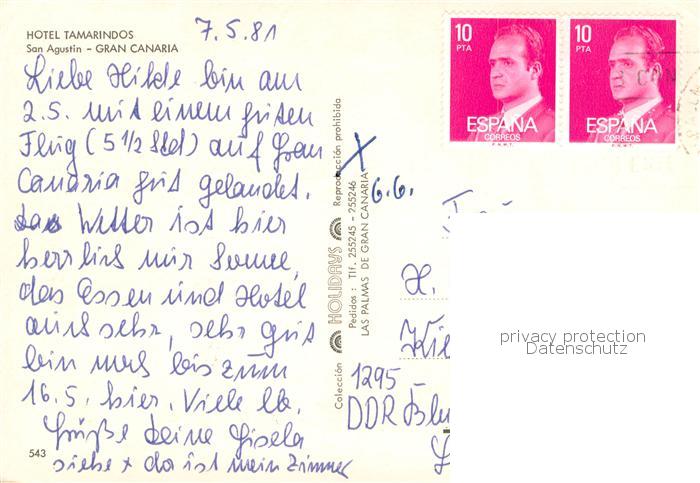 HOTEL TAMARINDOS
San Agustin – GRAN CANARIA
7.5.81
Liebe Hilde bin am
2.5. mit einem guten
Flug (5 1/2 Std) auf Gran
Canaria gut gelandet.
das Wetter ist hier
herrlich nur Sonne,
das Essen und Hotel
auch sehr, sehr gut
bin noch bis zum
16.5. hier. Viele lb.
Grüße deine Gisela
siehe x da ist mein Zimmer
543
Colección HOLIDAYS Reproducción prohibida
Pedidos: Tlf. 255245 - 255246
LAS PALMAS DE GRAN CANARIA
X
6.6.
10
PTA
ESPAÑA
CORREOS
F.N.M.T.
10
PTA
ESPAÑA
CORREOS
F.N.M.T.
H.
1295
DDR
privacy protection
Datenschutz